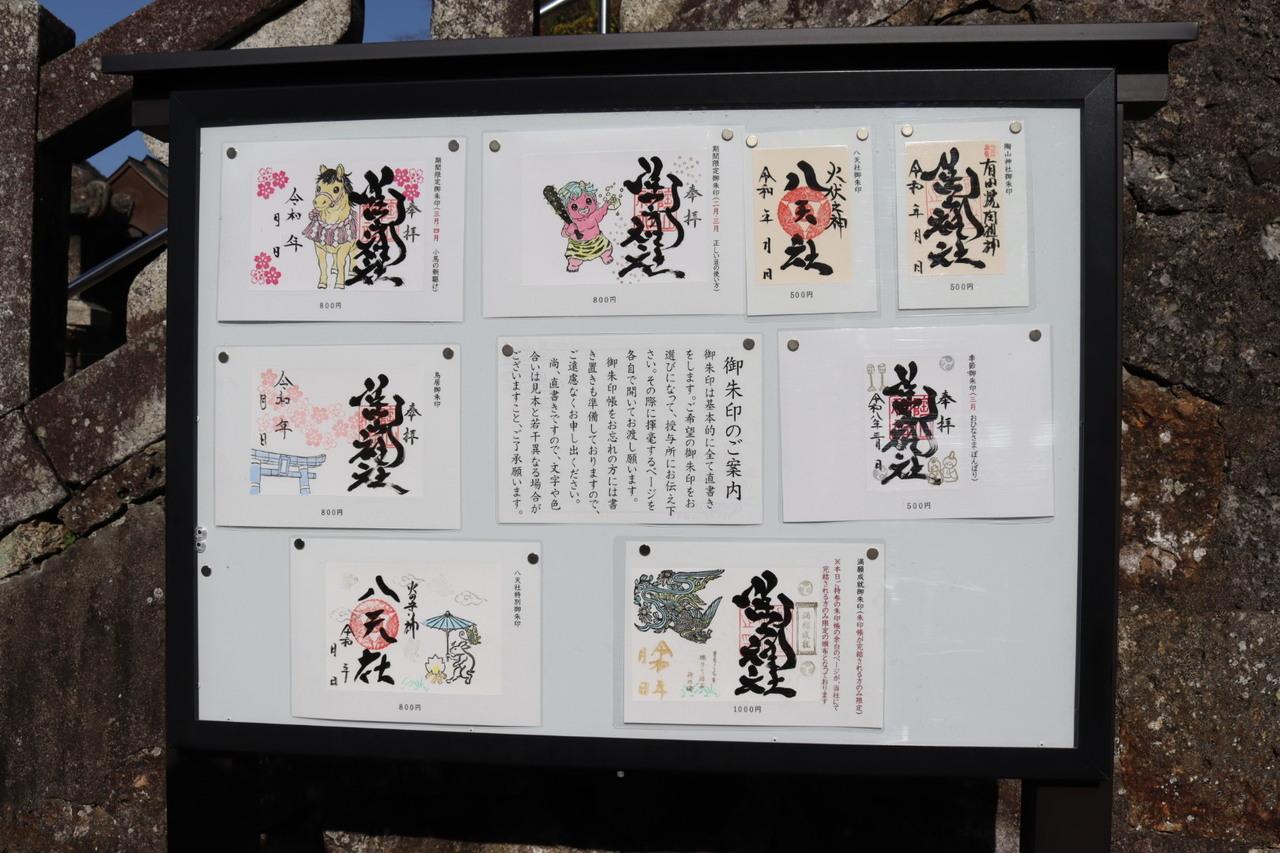 期間限定御朱印(三月 四月
奉拝
陶山神社
令和 年
月 日
800円
期間限定御朱印(二月 三月 正しい豆の使い方)
奉拝
陶山神社
800円
八天社御朱印
火伏之神
八天社
令和 年 月 日
500円
陶山神社御朱印
有田焼陶祖神
陶山神社
令和 年 月 日
500円
鳥居御朱印
奉拝
陶山神社
令和 年
月 日
800円
御朱印のご案内
御朱印は基本的に全て直書き
をします。ご希望の御朱印をお
選びになって、授与所にお伝え下
さい。その際に揮毫するページを
各自で開いてお渡し願います。
御朱印帳をお忘れの方には書
き置きも準備しておりますので、
ご遠慮なくお申し出ください。
尚、直書きですので、文字や色
合いは見本と若干異なる場合が
ございますこと、ご了承願います。
季節御朱印(三月 おひなさま ぼんぼり)
奉拝
陶山神社
令和八年三月 日
500円
八天社特別御朱印
八天社
令和 年
月 日
800円
満願成就御朱印(朱印帳が完結される方のみ限定)
※本日ご持参の朱印帳の余白のページが、当社にて
完結される方のみ限定の頒布となっております
満願成就
陶山神社
令和 年
月 日
1000円